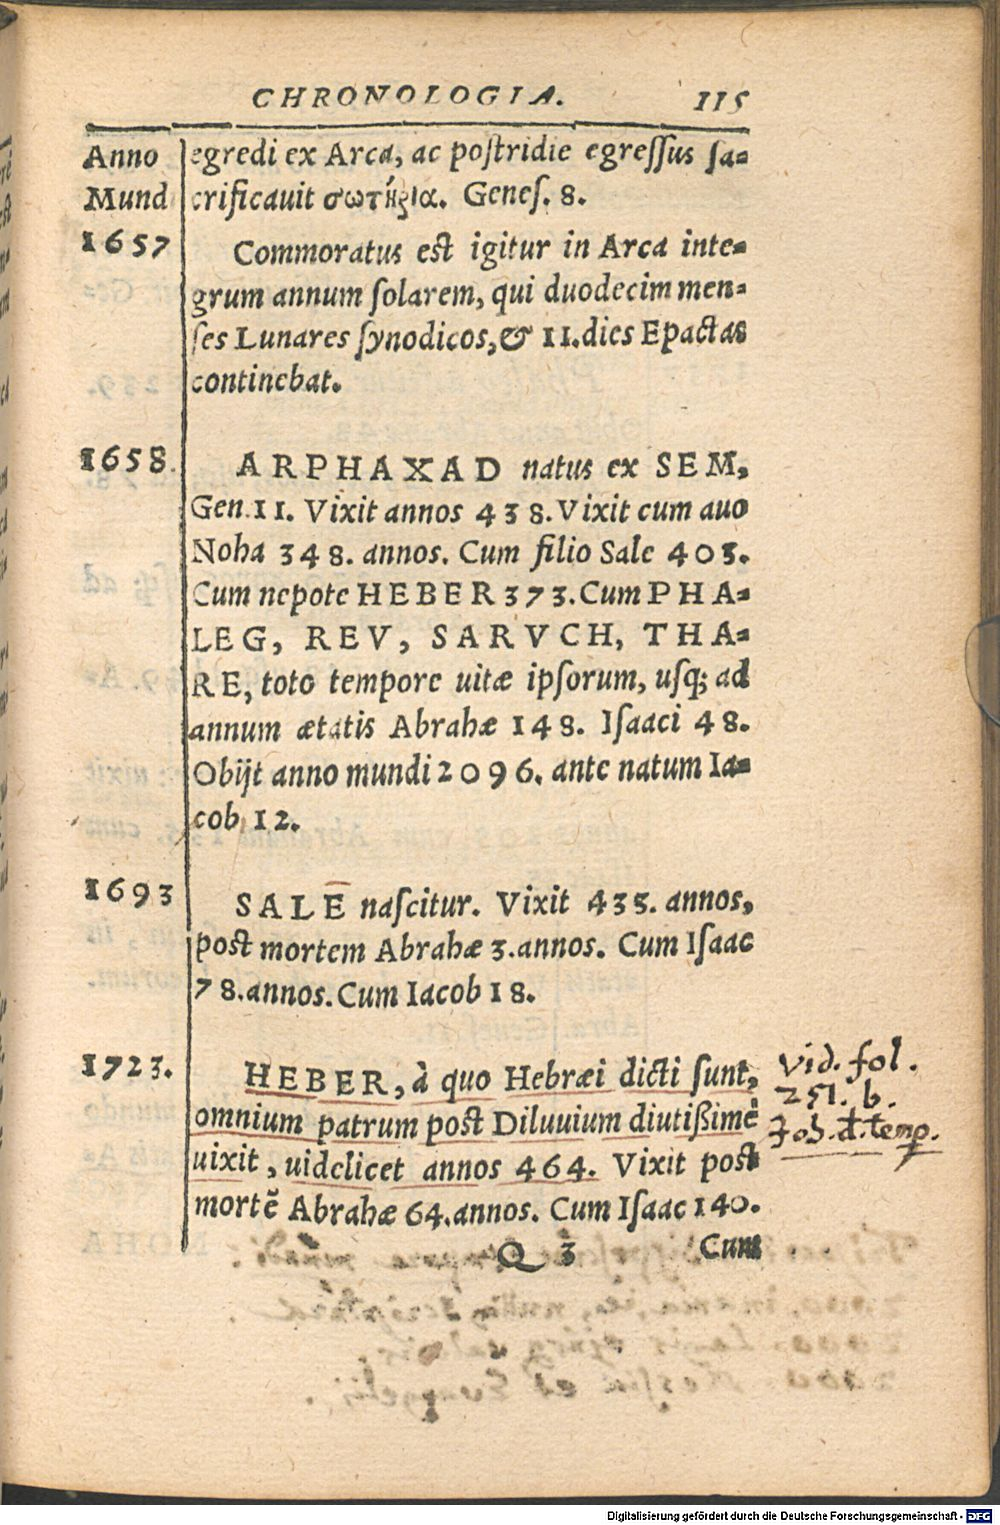 CHRONOLOGIA. 115
Anno egredi ex Arca, ac poſtridie egreſſus ſa-
Mund crificavit σωτήρια. Geneſ. 8.
1657 Commoratus eſt igitur in Arca inte-
grum annum ſolarem, qui duodecim men-
ſes Lunares ſynodicos, & 11. dies Epactas
continebat.
1658. ARPHAXAD natus ex SEM,
Gen. 11. Vixit annos 438. Vixit cum auo
Noha 348. annos. Cum filio Sale 403.
Cum nepote HEBER 373. Cum PHA-
LEG, REV, SARVCH, THA-
RE, toto tempore uitæ ipſorum, uſq; ad
annum ætatis Abrahæ 148. Iſaaci 48.
Obijt anno mundi 2096. ante natum Ia-
cob 12.
1693 SALE naſcitur. Vixit 433. annos,
poſt mortem Abrahæ 3. annos. Cum Iſaac
78. annos. Cum Iacob 18.
1723. HEBER, à quo Hebræi dicti ſunt,
omnium patrum poſt Diluuium diutißimè
uixit, uidelicet annos 464. Vixit poſt
mortē Abrahæ 64. annos. Cum Iſaac 140.
Q 3 Cum
Vid. fol.
251. b.
Joh. d. temp.
Digitalisierung gefördert durch die Deutsche Forschungsgemeinschaft - DFG